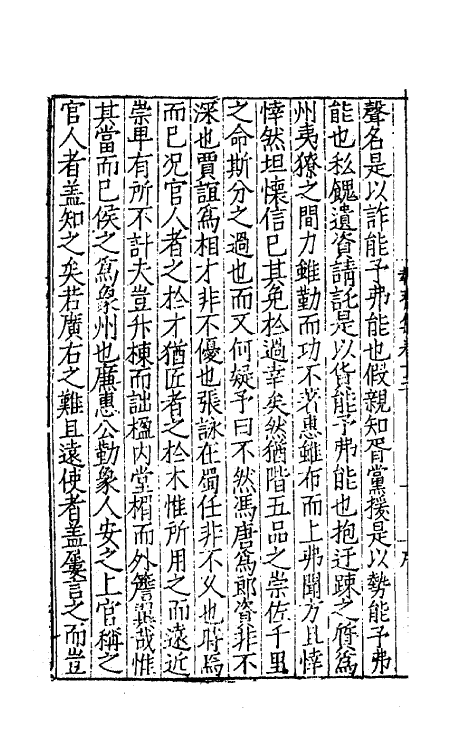 聲名是以詐能予弗能也假親知胥黨援是以勢能予弗
能也私餽遺資請託是以貨能予弗能也抱迂踈之資為
州夷獠之間力雖勤而功不著惠雖布而上弗聞方且悻
悻然坦懷信已其免於過幸矣然猶階五品之崇佐千里
之命斯分之過也而又何疑予曰不然馮唐為郎資非不
深也賈誼為相才非不優也張詠在蜀任非不久也時焉
而已况官人者之於才猶匠者之於木惟所用之而遠近
崇卑有所不計夫豈升棟而詘楹内堂楣而外簷翼哉惟
其當而已侯之為象州也廉惠公勤象人安之上官稱之
官人者盖知之矣若廣右之難且遠使者盖屢言之而豈